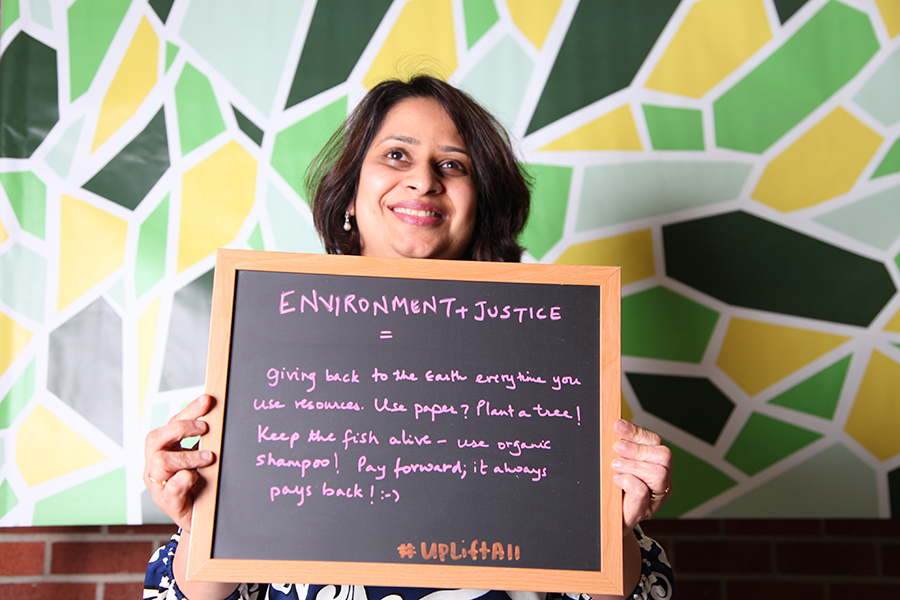 ENVIRONMENT + JUSTICE
=
giving back to the Earth everytime you
use resources. Use paper? Plant a tree!
Keep the fish alive - use organic
shampoo! Pay forward; it always
pays back! :-)
#UPLiftAll